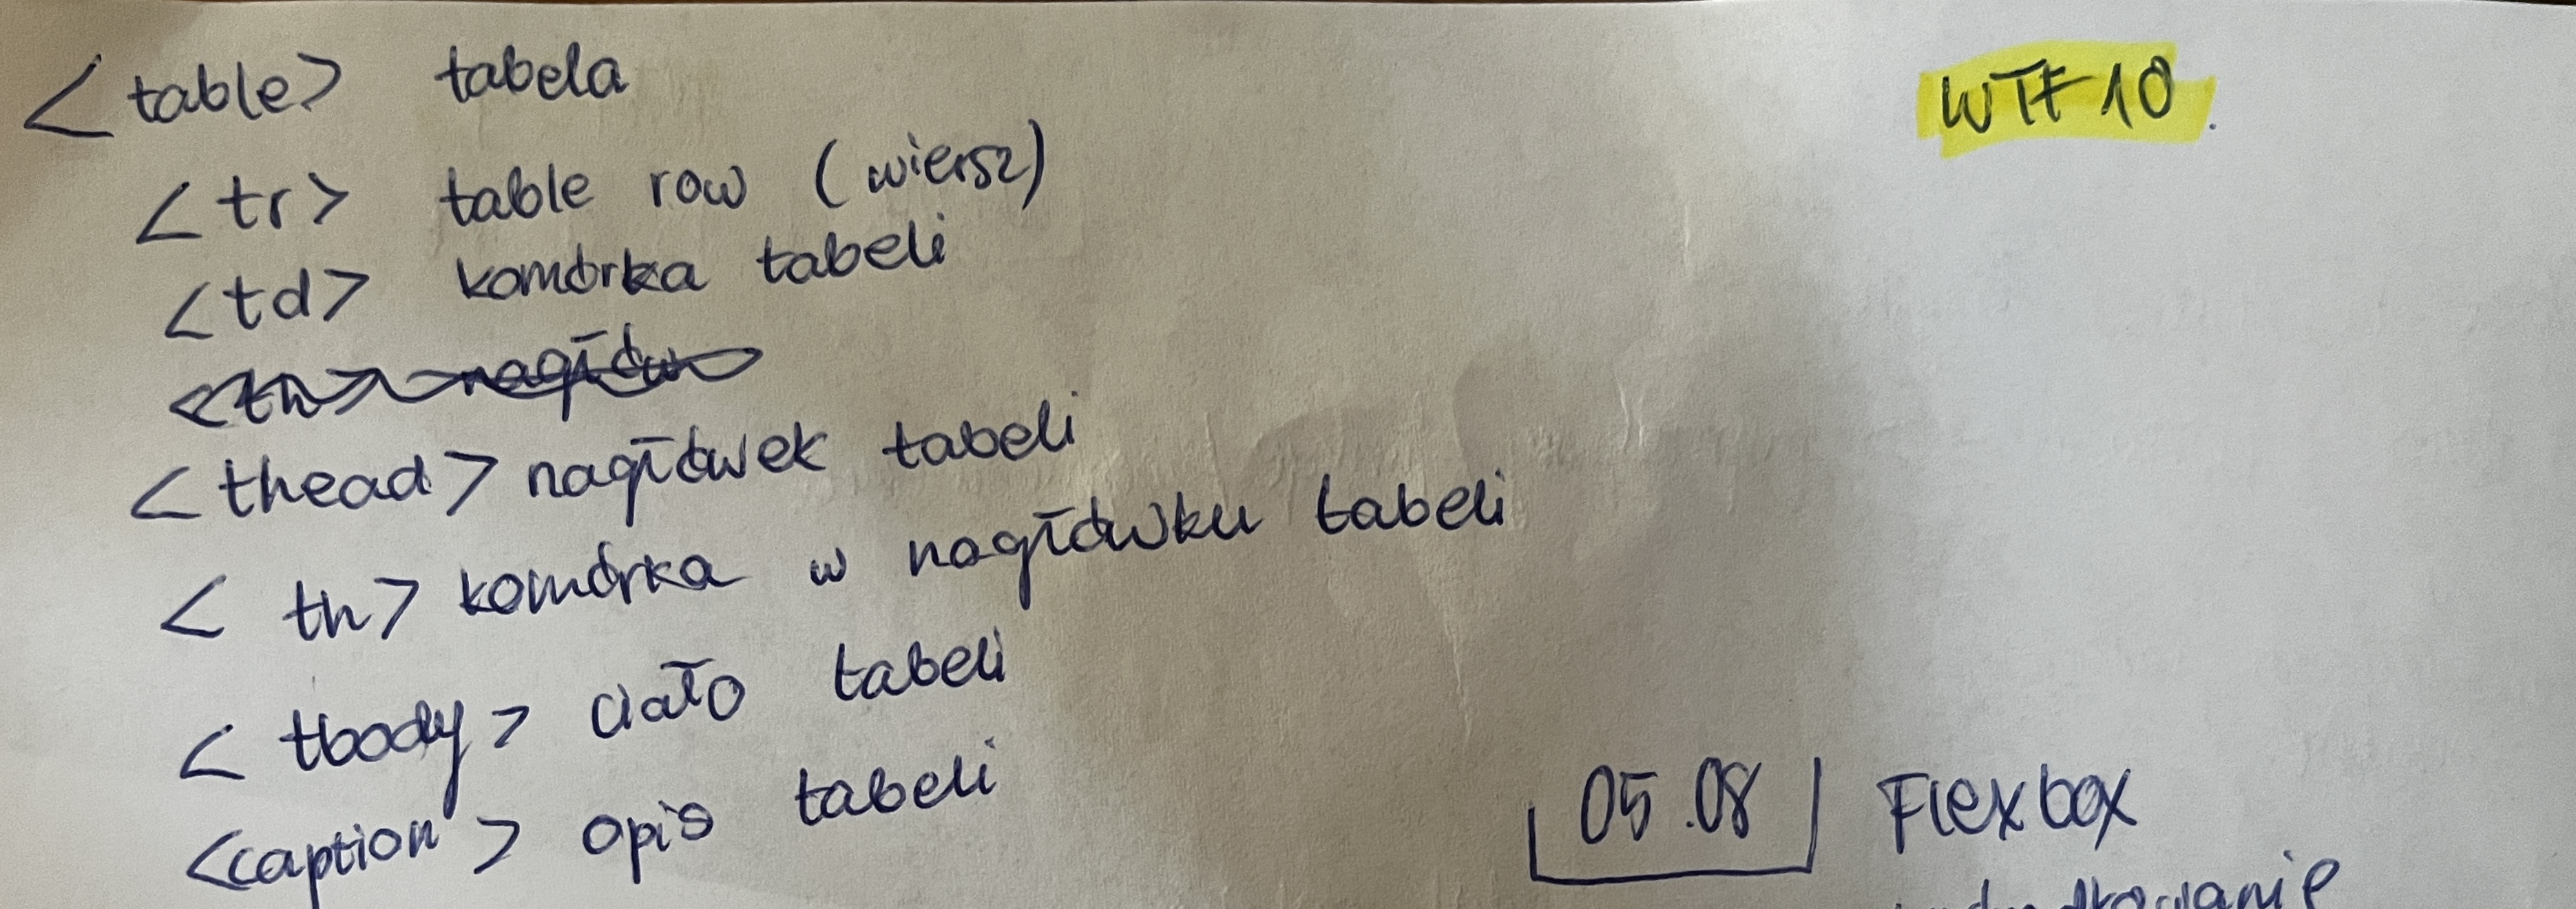 <table> tabela
WTF 10
<tr> table row (wiersz)
<td> komórka tabeli
<th> nagłów
<thead> nagłówek tabeli
< th> komórka w nagłówku tabeli
< tbody> ciało tabeli
<caption> opis tabeli
05.08 Flexbox